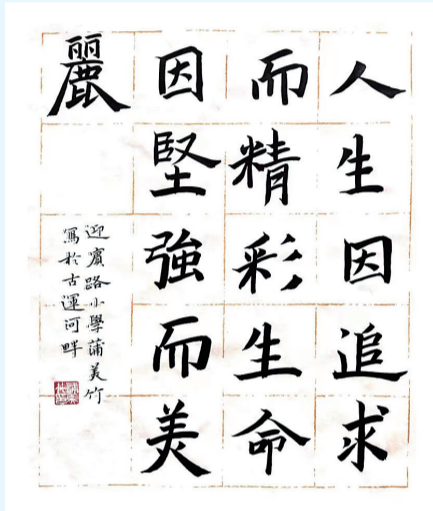 人生因追求
而精彩生命
因堅強而美
麗
迎賓路小學蒲美竹
寫於古運河畔